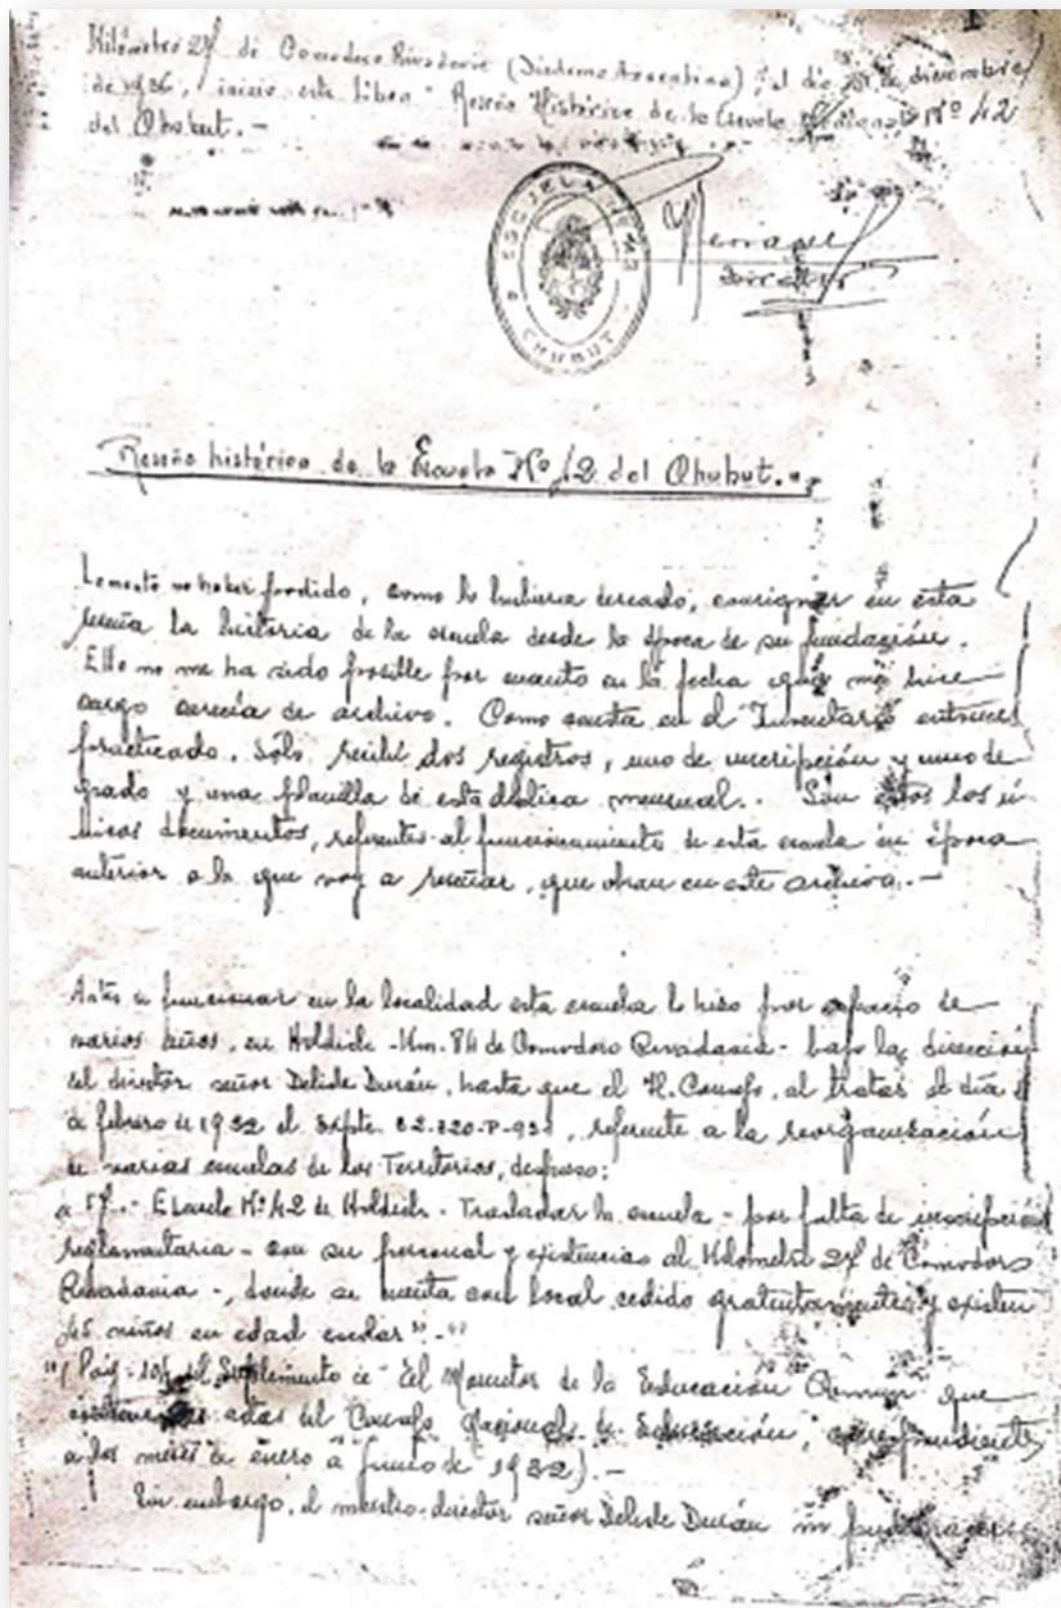 Kilómetro 27 de Comodoro Rivadavia (Diadema Argentina), el día 31 de diciembre
de 1936, inicio este libro "Reseña Histórica de la Escuela Nacional Nº 42
del Chubut. -
ESCUELA Nº 42
CHUBUT
Director
Reseña histórica de la Escuela Nº 42 del Chubut. -
Lamento no haber podido, como lo hubiera deseado, consignar en esta
reseña la historia de la escuela desde la época de su fundación.
Ello no me ha sido posible por cuanto en la fecha que me hice
cargo carecía de archivo. Como consta en el Inventario entonces
practicado, sólo recibí dos registros, uno de inscripción y uno de
grado y una planilla de estadística mensual. Son estos los ú-
nicos documentos, referentes al funcionamiento de esta escuela en época
anterior a la que voy a reseñar, que obran en este archivo. -
Antes de funcionar en la localidad esta escuela lo hizo por espacio de
varios años, en Holdich - Km. 84 de Comodoro Rivadavia - bajo la dirección
del director señor Delide Durán, hasta que el H. Consejo, al tratar el día
de febrero de 1932 el Expte. 22.820-P-931, referente a la reorganización
de varias escuelas de los Territorios, dispuso:
Escuela Nº 42 de Holdich - Trasladar la escuela - por falta de inscripción
reglamentaria - con su personal y existencias al Kilómetro 27 de Comodoro
Rivadavia -, donde se cuenta con local cedido gratuitamente y existen
45 niños en edad escolar" -"
"(Pág. del Suplemento de "El Monitor de la Educación Común" que
contiene las actas del Consejo Nacional de Educación, correspondiente
a los meses de enero a junio de 1932). -
Sin embargo, el maestro-director señor Delide Durán